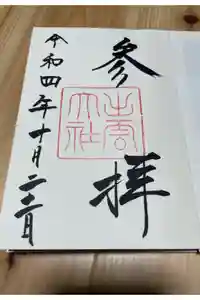 参拝
出雲
大社
令和四年十月二三日